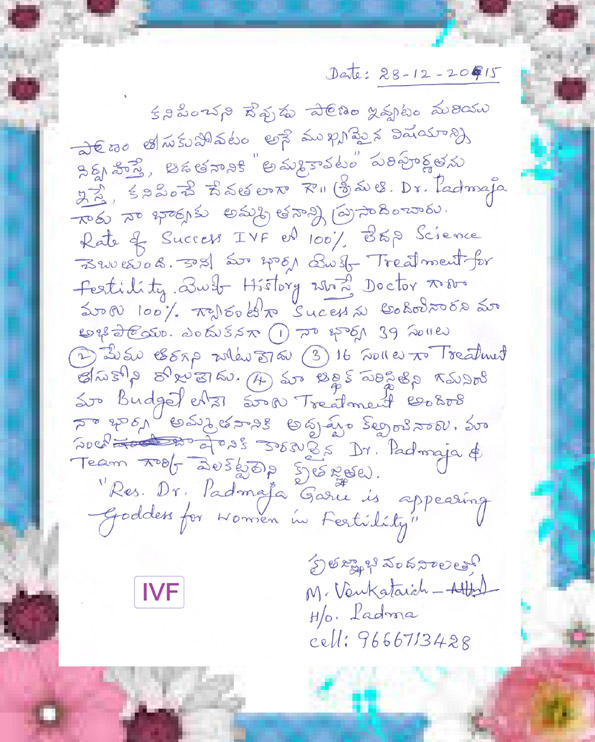 Date: 28-12-2015
కనిపించని దేవుడు ప్రాణం ఇవ్వటం మరియు
ప్రాణం తీసుకుపోవటం అనే ముఖ్యమైన విషయాన్ని
నిర్వహిస్తే, ఆడతనానికి "అమ్మకావటం" పరిపూర్ణతను
ఇస్తే, కనిపించే దేవతలాగా గౌ॥ శ్రీమతి. Dr. Padmaja
గారు నా భార్యకు అమ్మతనాన్ని ప్రసాదించారు.
Rate of Success IVF లో 100% లేదని Science
చెబుతుంది. కాని మా భార్య యొక్క Treatment for
Fertility యొక్క History చూస్తే Doctor గారు
మాకు 100% గ్యారంటీగా Sucess ను అందించినారని మా
అభిప్రాయం. ఎందుకనగా ① నా భార్య 39 సం॥లు
② మేము తిరగని చోటులేదు ③ 16 సం॥లుగా Treatment
తీసుకోని రోజులేదు. ④ మా ఆర్థిక పరిస్థితిని గమనించి
మా Budget లోనే మాకు Treatment అందించి
నా భార్య అమ్మతనానికి అదృష్టం కల్పించినారు. మా
సంతోషానికి కారకులైన Dr. Padmaja &
Team గారికి వెలకట్టలేని కృతజ్ఞతలు.
"Res. Dr. Padmaja Garu is appearing
Goddess for women in Fertility"
కృతజ్ఞాభివందనాలతో,
IVF
M. Venkataiah
H/o. Padma
cell: 9666713428